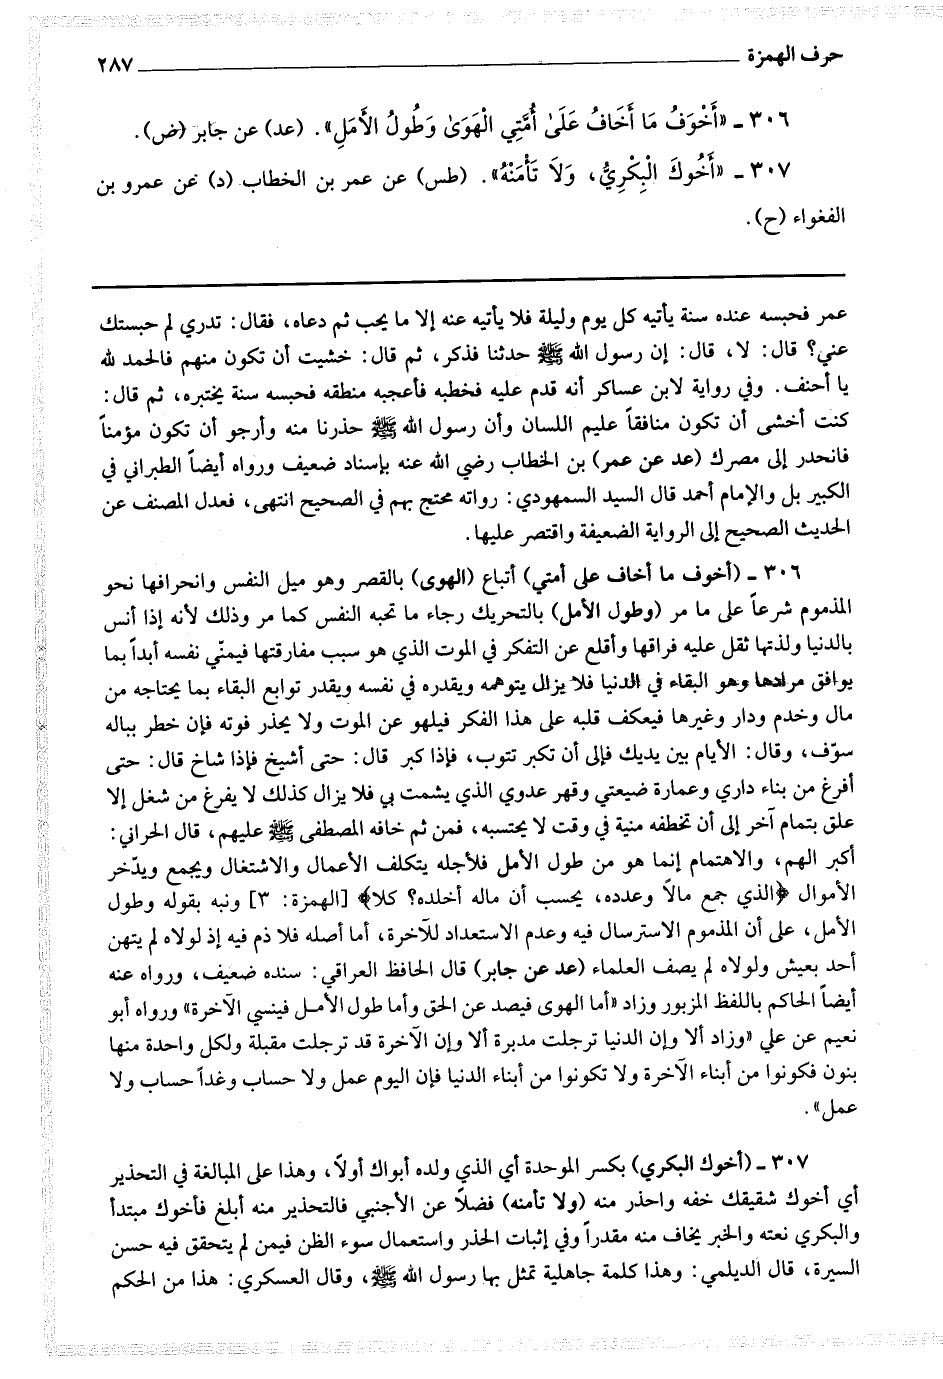 حرف الهمزة ٢٨٧
٣٠٦ ـ «أَخْوَفُ مَا أَخَافُ عَلَىٰ أُمَّتِي الْهَوَىٰ وَطُولُ الأَمَلِ». (عد) عن جابر (ض).
٣٠٧ ـ «أَخُوكَ الْبِكْرِيُّ، وَلاَ تَأْمَنْهُ». (طس) عن عمر بن الخطاب (د) عن عمرو بن
الفغواء (ح).
عمر فحبسه عنده سنة يأتيه كل يوم وليلة فلا يأتيه عنه إلا ما يحب ثم دعاه، فقال: تدري لم حبستك
عني؟ قال: لا، قال: إن رسول الله ﷺ حدثنا فذكر، ثم قال: خشيت أن تكون منهم فالحمد لله
يا أحنف. وفي رواية لابن عساكر أنه قدم عليه فخطبه فأعجبه منطقه فحبسه سنة يختبره، ثم قال:
كنت أخشى أن تكون منافقاً عليم اللسان وأن رسول الله ﷺ حذرنا منه وأرجو أن تكون مؤمناً
فانحدر إلى مصرك (عد عن عمر) بن الخطاب رضي الله عنه بإسناد ضعيف ورواه أيضاً الطبراني في
الكبير بل والإمام أحمد قال السيد السمهودي: رواته محتج بهم في الصحيح انتهى، فعدل المصنف عن
الحديث الصحيح إلى الرواية الضعيفة واقتصر عليها.
٣٠٦ ـ (أخوف ما أخاف على أمتي) أتباع (الهوى) بالقصر وهو ميل النفس وانحرافها نحو
المذموم شرعاً على ما مر (وطول الأمل) بالتحريك رجاء ما تحبه النفس كما مر وذلك لأنه إذا أنس
بالدنيا ولذتها ثقل عليه فراقها وأقلع عن التفكر في الموت الذي هو سبب مفارقتها فيمنّي نفسه أبداً بما
يوافق مرادها وهو البقاء في الدنيا فلا يزال يتوهمه ويقدره في نفسه ويقدر توابع البقاء بما يحتاجه من
مال وخدم ودار وغيرها فيعكف قلبه على هذا الفكر فيلهو عن الموت ولا يحذر فوته فإن خطر بباله
سوّف، وقال: الأيام بين يديك فإلى أن تكبر تتوب، فإذا كبر قال: حتى أشيخ فإذا شاخ قال: حتى
أفرغ من بناء داري وعمارة ضيعتي وقهر عدوي الذي يشمت بي فلا يزال كذلك لا يفرغ من شغل إلا
علق بتمام آخر إلى أن تخطفه منية في وقت لا يحتسبه، فمن ثم خافه المصطفى ﷺ عليهم، قال الحراني:
أكبر الهم، والاهتمام إنما هو من طول الأمل فلأجله يتكلف الأعمال والاشتغال ويجمع ويدّخر
الأموال ﴿الذي جمع مالاً وعدده، يحسب أن ماله أخلده؟ كلا﴾ [الهمزة: ٣] ونبه بقوله وطول
الأمل، على أن المذموم الاسترسال فيه وعدم الاستعداد للآخرة، أما أصله فلا ذم فيه إذ لولاه لم يتهن
أحد بعيش ولولاه لم يصف العلماء (عد عن جابر) قال الحافظ العراقي: سنده ضعيف، ورواه عنه
أيضاً الحاكم باللفظ المزبور وزاد «أما الهوى فيصد عن الحق وأما طول الأمل فينسي الآخرة» ورواه أبو
نعيم عن علي «وزاد ألا وإن الدنيا ترجلت مدبرة ألا وإن الآخرة قد ترجلت مقبلة ولكل واحدة منها
بنون فكونوا من أبناء الآخرة ولا تكونوا من أبناء الدنيا فإن اليوم عمل ولا حساب وغداً حساب ولا
عمل».
٣٠٧ ـ (أخوك البكري) بكسر الموحدة أي الذي ولده أبواك أولاً، وهذا على المبالغة في التحذير
أي أخوك شقيقك خفه واحذر منه (ولا تأمنه) فضلاً عن الأجنبي فالتحذير منه أبلغ فأخوك مبتدأ
والبكري نعته والخبر يخاف منه مقدراً وفي إثبات الحذر واستعمال سوء الظن فيمن لم يتحقق فيه حسن
السيرة، قال الديلمي: وهذا كلمة جاهلية تمثل بها رسول الله ﷺ، وقال العسكري: هذا من الحكم